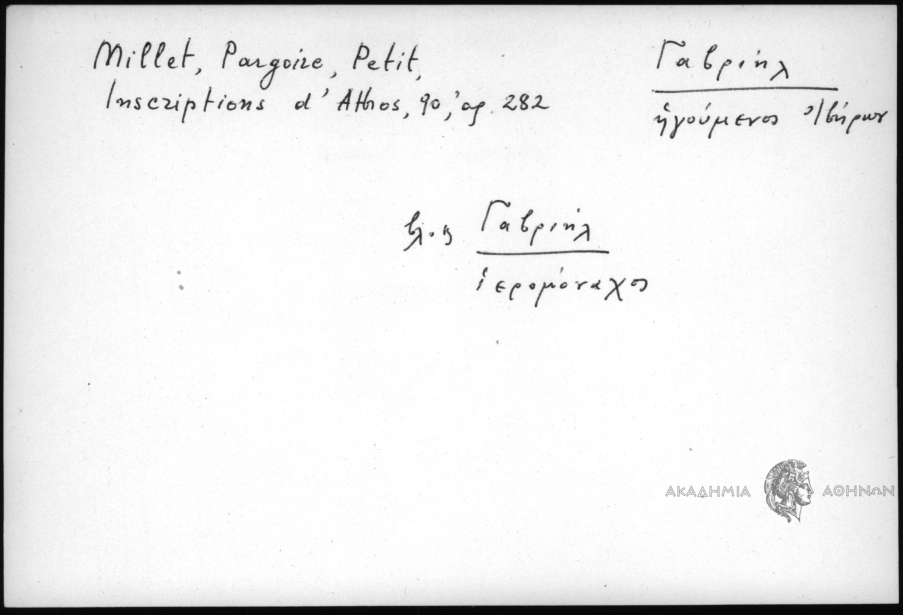 Millet, Pargoire, Petit,
Inscriptions d'Athos, 90, ἀρ. 282
Γαβριήλ
ἡγούμενος Ἰβήρων
βλ. κ Γαβριήλ
ἱερομόναχος
ΑΚΑΔΗΜΙΑ ΑΘΗΝΩΝ